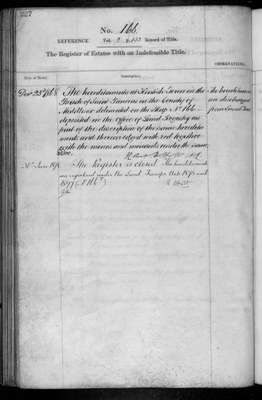 227
No. 166.
REFERENCE Vol. 2 p. 227 Record of Title.
The Register of Estates with an Indefeasible Title.
OBSERVATIONS.
Date of Entry.
Description.
Decr 23rd 1868 The hereditaments at Kentish Town in the The hereditaments
Parish of Saint Pancras in the County of are discharged
Middlesex delineated on the Map No 166 from
deposited in the Office of Land Registry as
part of the description of the same heredita
ments and thereon edged with red together
with the mines and minerals under the same
The Register is closed. The hereditaments
are registered under the Land Transfer Acts 1875 and
1897